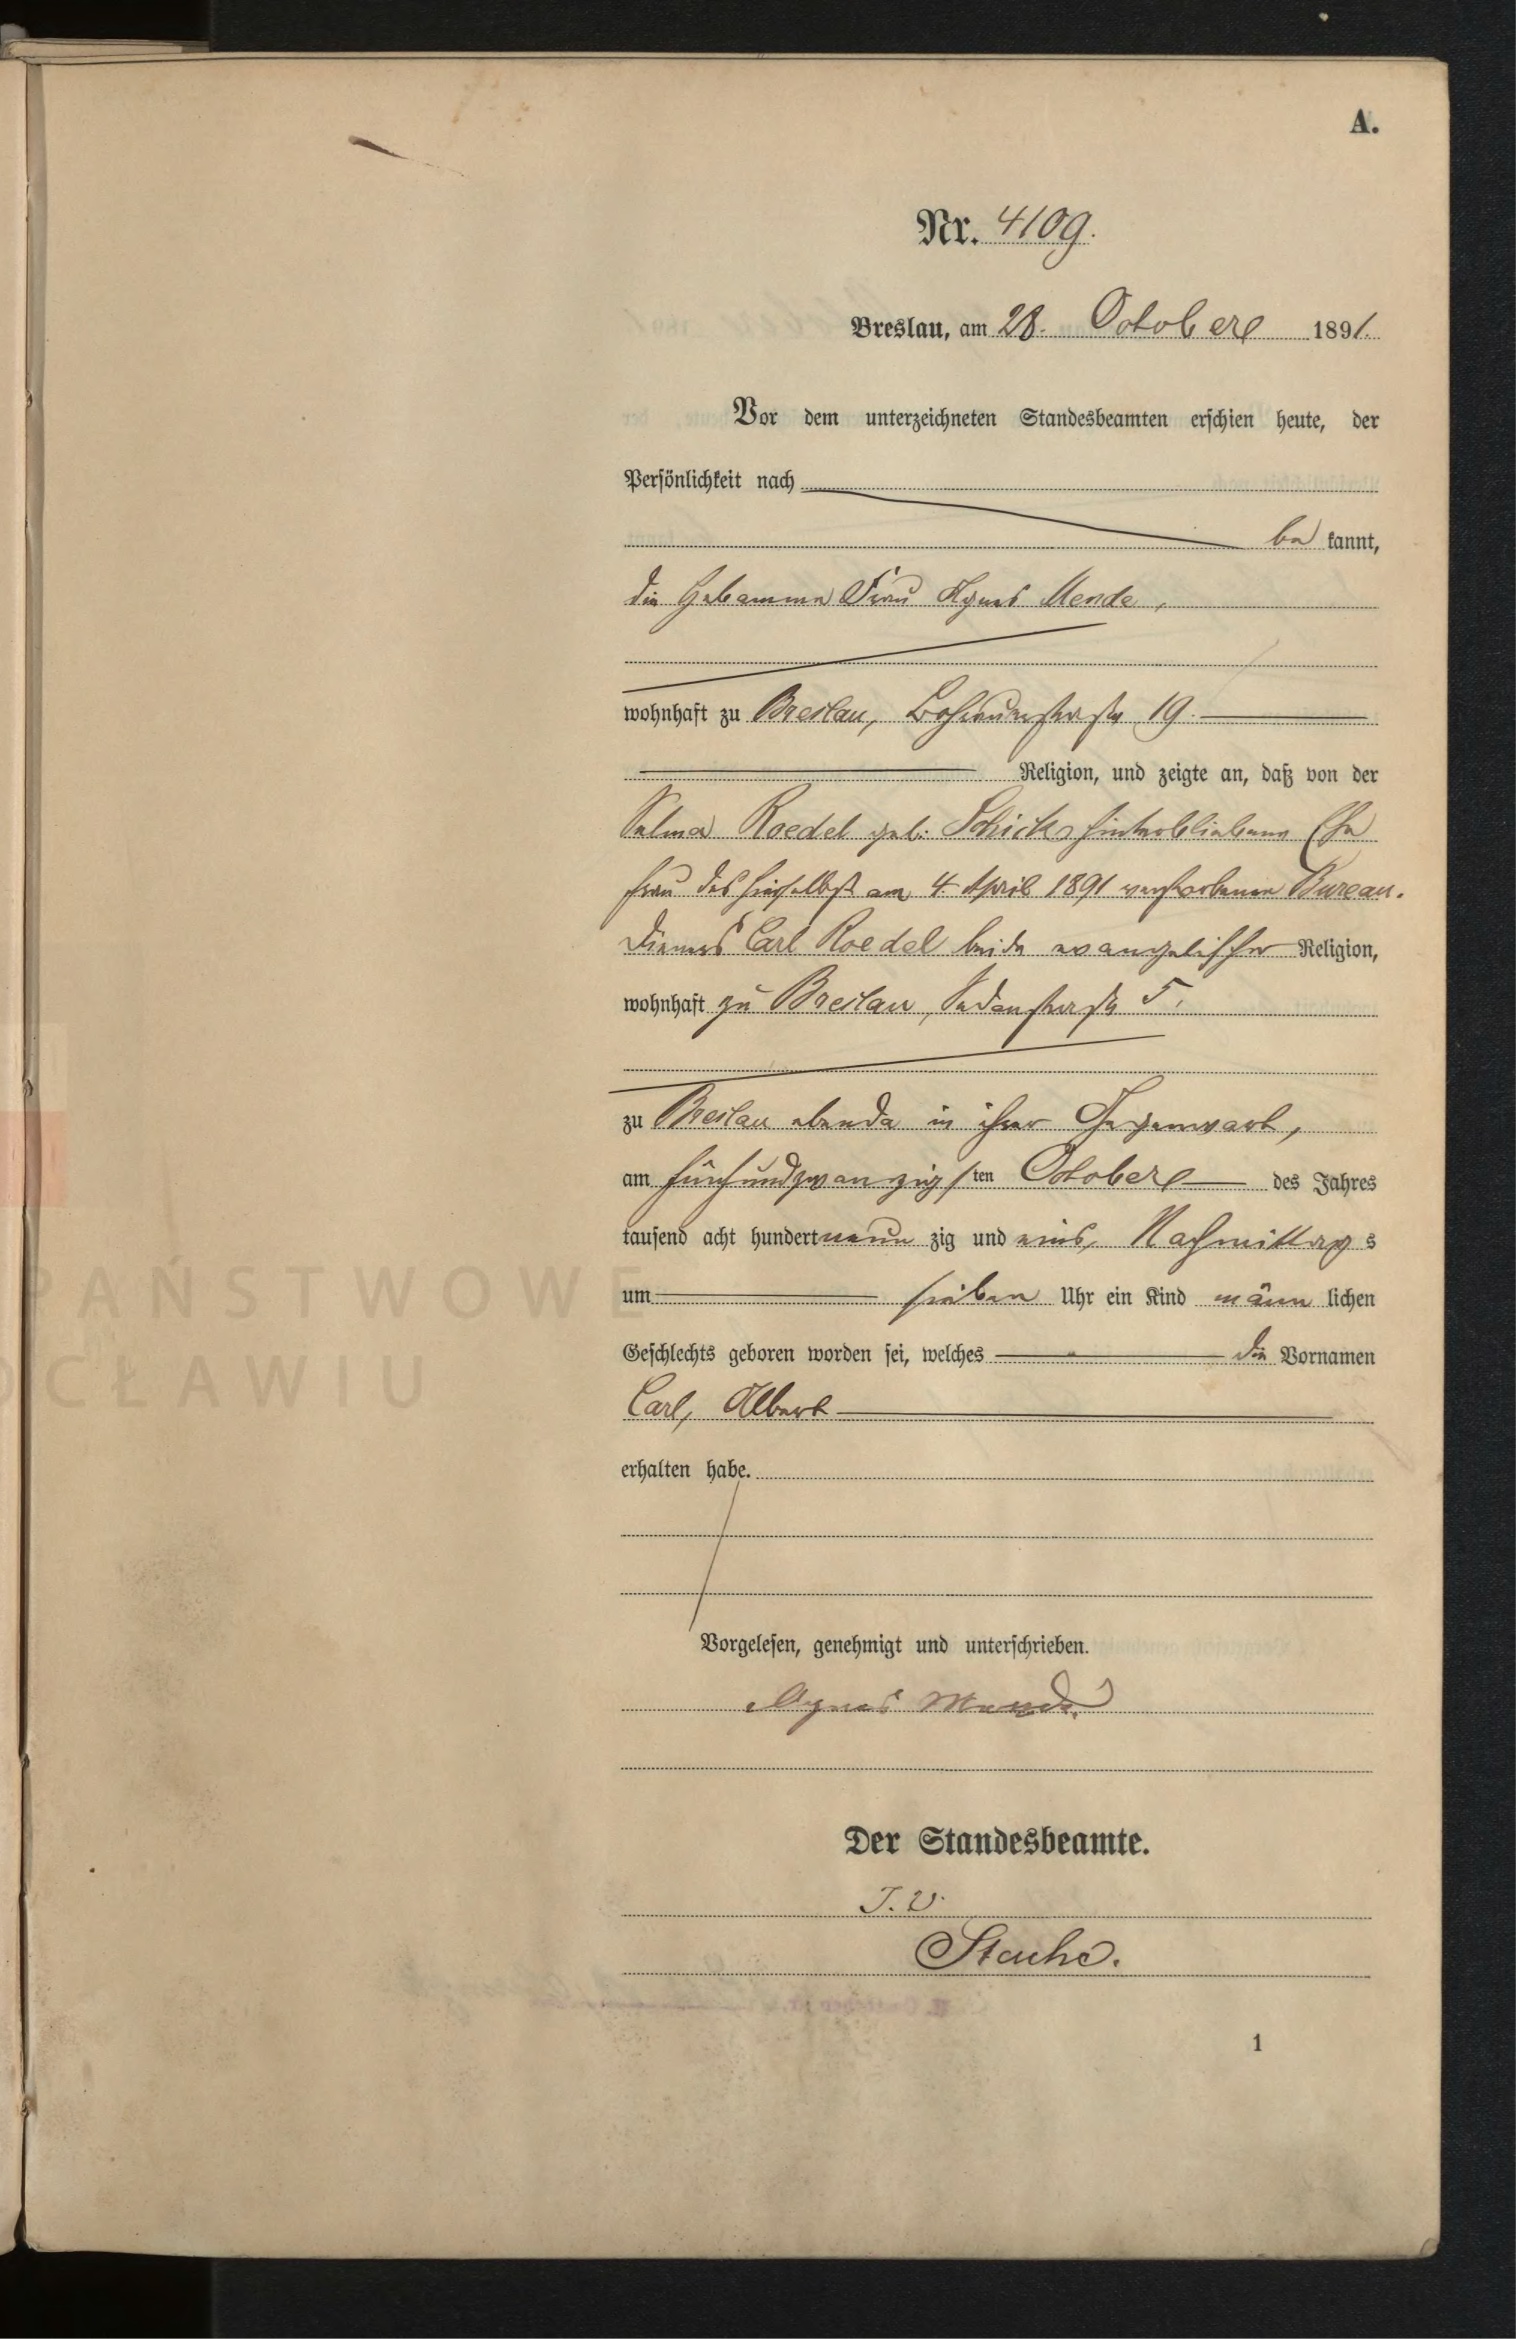 A.
Nr. 4109.
Breslau, am 28. October 1891.
Vor dem unterzeichneten Standesbeamten erschien heute, der
Persönlichkeit nach
be kannt,
die Hebamme Frau Agnes Mende,
wohnhaft zu Breslau, Bohrauerstraße 19.
Religion, und zeigte an, daß von der
Selma Roedel geb: Schick, hinterbliebene Ehe
frau des hierselbst am 4. April 1891 verstorbenen Bureau.
Dieners Carl Roedel beide evangelischer Religion,
wohnhaft zu Breslau, Sedanstraße 5.
zu Breslau ebenda in ihrer Gegenwart,
am fünfundzwanzigsten October des Jahres
tausend acht hundert neun zig und eins, Nachmittags
um sieben Uhr ein Kind männ lichen
Geschlechts geboren worden sei, welches die Vornamen
Carl, Albert
erhalten habe.
Vorgelesen, genehmigt und unterschrieben.
Agnes Mende.
Der Standesbeamte.
J. V.
Stache.
1
PAŃSTWOWE
OCŁAWIU